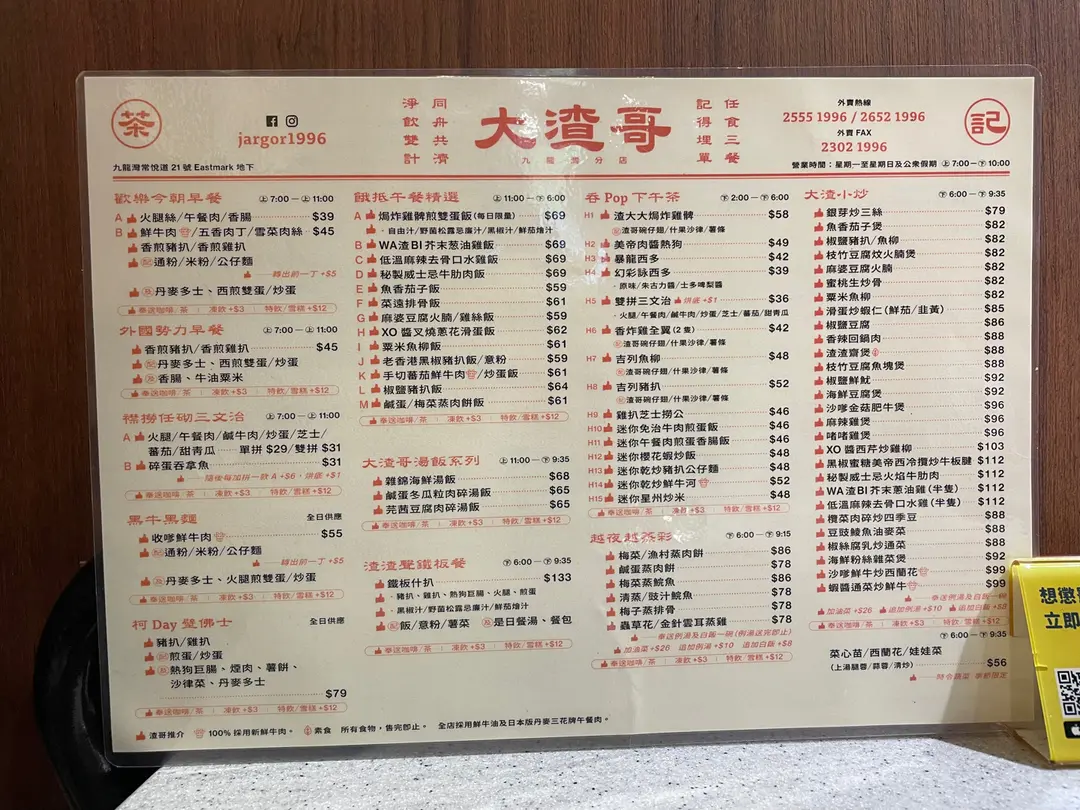 茶
jargor1996
淨飲雙計
同舟共濟
大渣哥
九龍灣分店
記得埋單
任食三餐
外賣熱線
2555 1996 / 2652 1996
外賣 FAX
2302 1996
記
九龍灣常悅道 21 號 Eastmark 地下
營業時間：星期一至星期日及公衆假期 上 7:00 — 下 10:00
歡樂今朝早餐 上 7:00 — 上 11:00
A 火腿絲/午餐肉/香腸 $39
B 鮮牛肉/五香肉丁/雪菜肉絲 $45
香煎豬扒/香煎雞扒
配 通粉/米粉/公仔麵
轉出前一丁 +$5
及 丹麥多士、西煎雙蛋/炒蛋
奉送咖啡/茶 | 凍飲+$3 | 特飲/雪糕+$12
外國勢力早餐 上 7:00 — 上 11:00
香煎豬扒/香煎雞扒 $45
配 丹麥多士、西煎雙蛋/炒蛋
及 香腸、牛油粟米
奉送咖啡/茶 | 凍飲+$3 | 特飲/雪糕+$12
襟撈任砌三文治 上 7:00 — 上 11:00
A 火腿/午餐肉/鹹牛肉/炒蛋/芝士/
蕃茄/甜青瓜 單拼 $29/雙拼 $31
B 碎蛋吞拿魚 $31
隨後每加拼一款 A +$6 · 烘底 +$1
奉送咖啡/茶 | 凍飲+$3 | 特飲/雪糕+$12
黑牛黑麵 全日供應
收嗲鮮牛肉 $55
配 通粉/米粉/公仔麵
轉出前一丁 +$5
及 丹麥多士、火腿煎雙蛋/炒蛋
奉送咖啡/茶 | 凍飲+$3 | 特飲/雪糕+$12
柯 Day 躄佛士 全日供應
豬扒/雞扒
配 煎蛋/炒蛋
及 熱狗巨腸、煙肉、薯餅、
沙律菜、丹麥多士 $79
奉送咖啡/茶 | 凍飲+$3 | 特飲/雪糕+$12
餓抵午餐精選 上 11:00 — 下 6:00
A 焗炸雞髀煎雙蛋飯(每日限量) $69
· 自由汁/野菌松露忌廉汁/黑椒汁/鮮茄燴汁
B WA渣BI芥末葱油雞飯 $69
C 低溫麻辣去骨口水雞飯 $69
D 秘製威士忌牛肋肉飯 $69
E 魚香茄子飯 $59
F 菜遠排骨飯 $61
G 麻婆豆腐火腩/雞絲飯 $59
H XO 醬叉燒蔥花滑蛋飯 $62
I 粟米魚柳飯 $61
J 老香港黑椒豬扒飯/意粉 $59
K 手切蕃茄鮮牛肉/炒蛋飯 $61
L 椒鹽豬扒飯 $64
M 鹹蛋/梅菜蒸肉餅飯 $61
奉送咖啡/茶 | 凍飲+$3 | 特飲/雪糕+$12
大渣哥湯飯系列 上 11:00 — 下 9:35
雜錦海鮮湯飯 $68
鹹蛋冬瓜粒肉碎湯飯 $65
芫茜豆腐肉碎湯飯 $65
奉送咖啡/茶 | 凍飲+$3 | 特飲/雪糕+$12
渣渣聲鐵板餐 下 6:00 — 下 9:35
鐵板什扒 $133
· 豬扒、雞扒、熱狗巨腸、火腿、煎蛋
· 黑椒汁/野菌松露忌廉汁/鮮茄燴汁
配 飯/意粉/薯菜 及 是日餐湯、餐包
奉送咖啡/茶 | 凍飲+$3 | 特飲/雪糕+$12
吞 Pop 下午茶 下 2:00 — 下 6:00
H1 渣大大焗炸雞髀 $58
配 渣哥碗仔翅/什果沙律/薯條
H2 美帝肉醬熱狗 $49
H3 暴龍西多 $42
H4 幻彩詠西多 $39
· 原味/朱古力醬/士多啤梨醬
H5 雙拼三文治 烘底 +$1 $36
· 火腿/午餐肉/鹹牛肉/炒蛋/芝士/蕃茄/甜青瓜
H6 香炸雞全翼 (2 隻) $42
配 渣哥碗仔翅/什果沙律/薯條
H7 吉列魚柳 $48
配 渣哥碗仔翅/什果沙律/薯條
H8 吉列豬扒 $52
配 渣哥碗仔翅/什果沙律/薯條
H9 雞扒芝士撈公 $46
H10 迷你免治牛肉煎蛋飯 $46
H11 迷你午餐肉煎蛋香腸飯 $46
H12 迷你櫻花蝦炒飯 $48
H13 迷你乾炒豬扒公仔麵 $48
H14 迷你乾炒鮮牛河 $52
H15 迷你星州炒米 $48
奉送咖啡/茶 | 凍飲+$3 | 特飲/雪糕+$12
越夜越茶彩 下 6:00 — 下 9:15
梅菜/漁村蒸肉餅 $86
鹹蛋蒸肉餅 $78
梅菜蒸鯇魚 $86
清蒸/豉汁鯇魚 $78
梅子蒸排骨 $78
蟲草花/金針雲耳蒸雞 $78
奉送例湯及白飯一碗(例湯送完即止)
加油菜 +$26 追加例湯 +$10 追加白飯 +$8
奉送咖啡/茶 | 凍飲+$3 | 特飲/雪糕+$12
大渣小炒 下 6:00 — 下 9:35
銀芽炒三絲 $79
魚香茄子煲 $82
椒鹽豬扒/魚柳 $82
枝竹豆腐炆火腩煲 $82
麻婆豆腐火腩 $82
蜜桃生炒骨 $82
粟米魚柳 $82
滑蛋炒蝦仁(鮮茄/韮黃) $85
椒鹽豆腐 $86
香辣回鍋肉 $88
渣渣齋煲 $88
枝竹豆腐魚塊煲 $88
椒鹽鮮魷 $92
海鮮豆腐煲 $92
沙嗲金菇肥牛煲 $96
麻辣雞煲 $96
啫啫雞煲 $96
XO 醬西芹炒雞柳 $103
黑椒蜜糖美帝西冷攪炒牛板腱 $112
秘製威士忌火焰牛肋肉 $112
WA 渣 BI 芥末蔥油雞 (半隻) $112
低溫麻辣去骨口水雞 (半隻) $112
欖菜肉碎炒四季豆 $88
豆豉鯪魚油麥菜 $88
椒絲腐乳炒通菜 $88
海鮮粉絲雜菜煲 $92
沙嗲鮮牛炒西蘭花 $99
蝦醬通菜炒鮮牛 $99
奉送例湯及白飯一碗
加油菜 +$26 追加例湯 +$10 追加白飯 +$8
奉送咖啡/茶 | 凍飲+$3 | 特飲/雪糕+$12
下 6:00 — 下 9:35
菜心苗/西蘭花/娃娃菜
(上湯腿蓉/蒜蓉/清炒) $56
特令蔬菜 季節限定
渣哥推介 100% 採用新鮮牛肉。 素食 所有食物，售完即止。 全店採用鮮牛油及日本版丹麥三花牌午餐肉。
想懲
立即